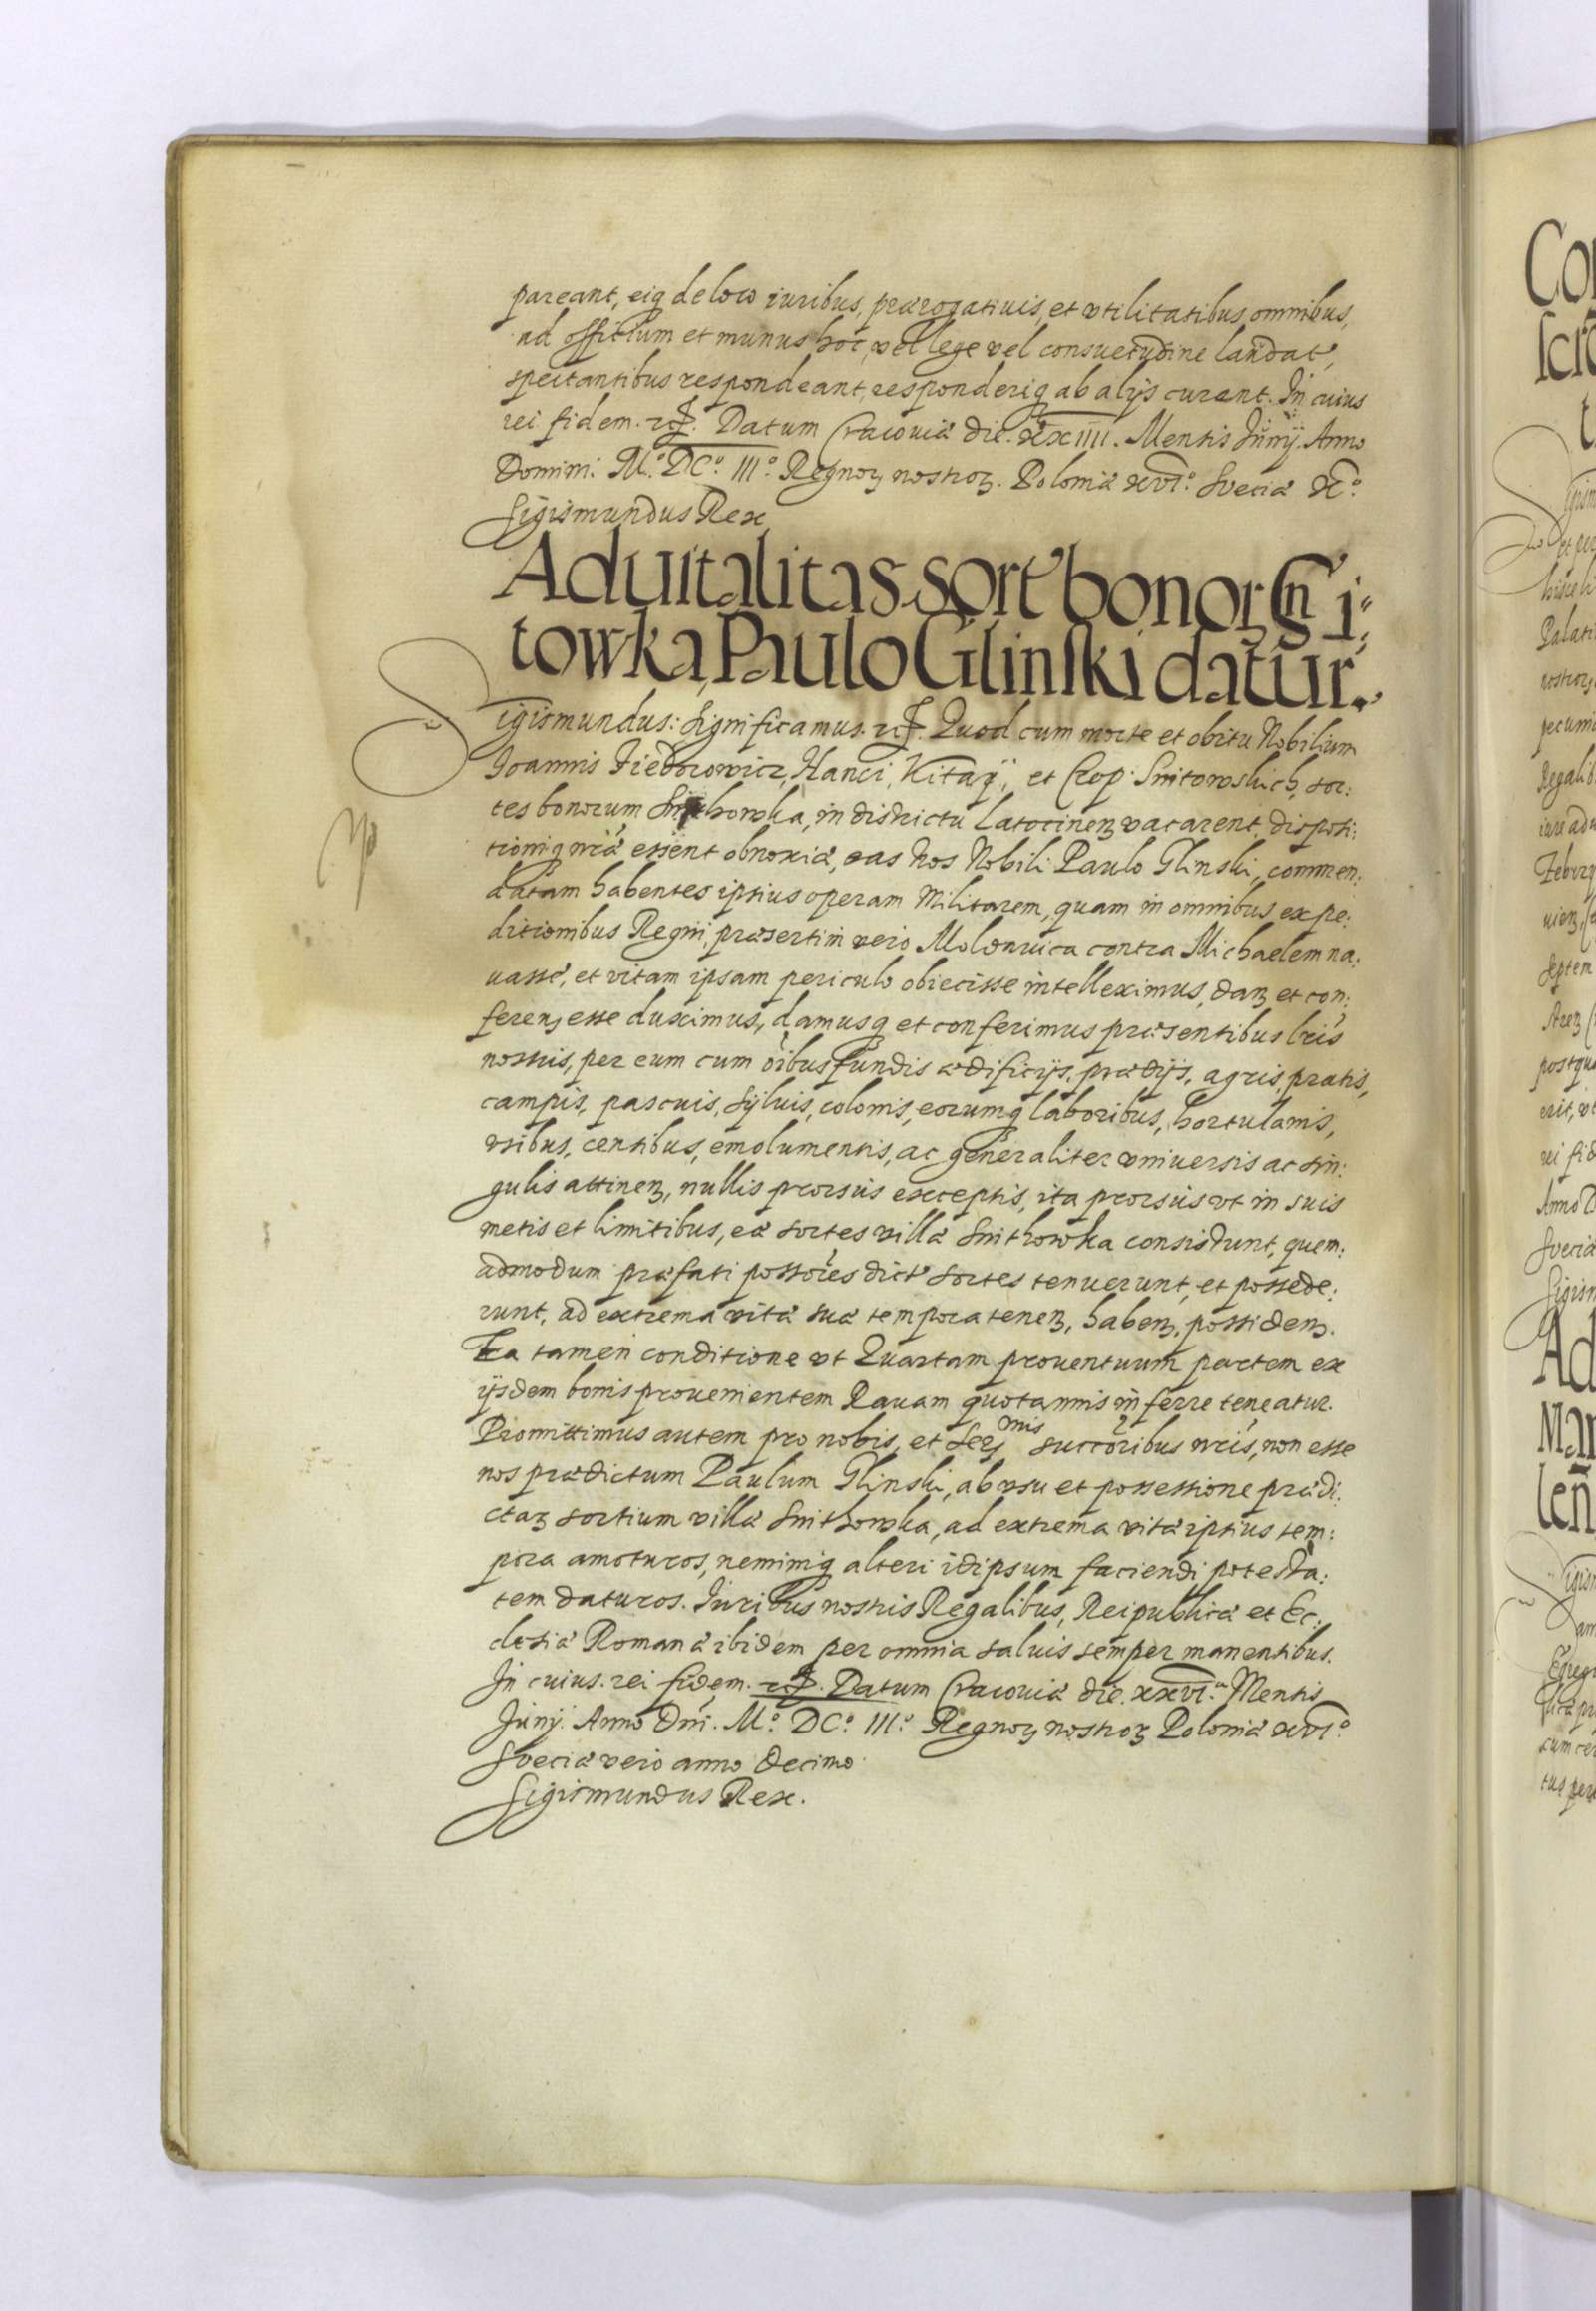 pareant, eiq de loco iuribus, prærogatiuis, et vtilitatibus omnibus,
ad offitium et munus hoc, vel lege vel consuetudine landat,
spectantibus respondeant, responderiq ab alijs curent. In cuius
rei fidem. Datum Cracouiæ die. XXIIII. Mensis Junij. Anno
Domini. M.º DCº. IIIº. Regnoꝝ nostroꝝ. Poloniæ xvi.º Sveciæ X.º
Sigismundus Rex
Aduitalitas sort bonoꝝ Sni⸗
towka, Paulo Glinski datur.
Sigismundus: Significamus. Quod cum morte et obitu Nobilium
Joannis Fiedorowicz, Hanci, Kitaÿ, et Crop: Snitowskich, sor:
tes bonorum Snithowka, in districtu Latocinenꝫ vacarent, disposi:
tioniq nræ essent obnoxiæ, eas Nos Nobili Paulo Glinski, commen:
datam habentes ipsius operam Militarem, quam in omnibus expe:
ditionibus Regni, præsertim vero Moldauica contra Michaelem na:
uasse, et vitam ipsam periculo obiecisse intelleximus, danꝫ et con:
ferenꝫ esse duximus, damusq et conferimus præsentibus lris
nostris, per eum cum oibus fundis ædificijs, prædijs, agris, pratis,
campis, pascuis, syluis, colonis, eorumq laboribus, hortulanis,
vsibus, censibus, emolumentis, ac generaliter vniuersis ac sin:
gulis attinenꝫ, nullis prorsus exceptis, ita prorsus vt in suis
metis et limitibus, eæ sortes villæ Snithowka consistunt, quem:
admodum præfati possores dict sortes tenuerunt, et possede:
runt, ad extrema vitæ suæ tempora tenenꝫ, habenꝫ, possidenꝫ.
Ea tamen conditione vt Quartam prouentuum partem ex
ijsdem bonis prouenientem Rauam quotannis inferre teneatur.
Promittimus autem pro nobis, et Serꝫmis succoribus nris, non esse
nos prædictum Paulum Glinski, ab vsu et possessione prædi:
ctaꝝ sortium villæ Snithowka, ad extrema vitæ ipsius tem:
pora amoturos, neminiq alteri idipsum faciendi potesta:
tem daturos. Juribus nostris Regalibus, Reipublicæ et Ec:
clesiæ Romanæ ibidem per omnia saluis semper manentibus.
In cuius. rei fidem. Datum Cracouiæ die. xxvi.a Mensis
Junij. Anno Dni. M.º DC.º III.º Regnoꝝ nostroꝝ Poloniæ xvi.º
Sveciæ vero anno decimo
Sigismundus Rex.